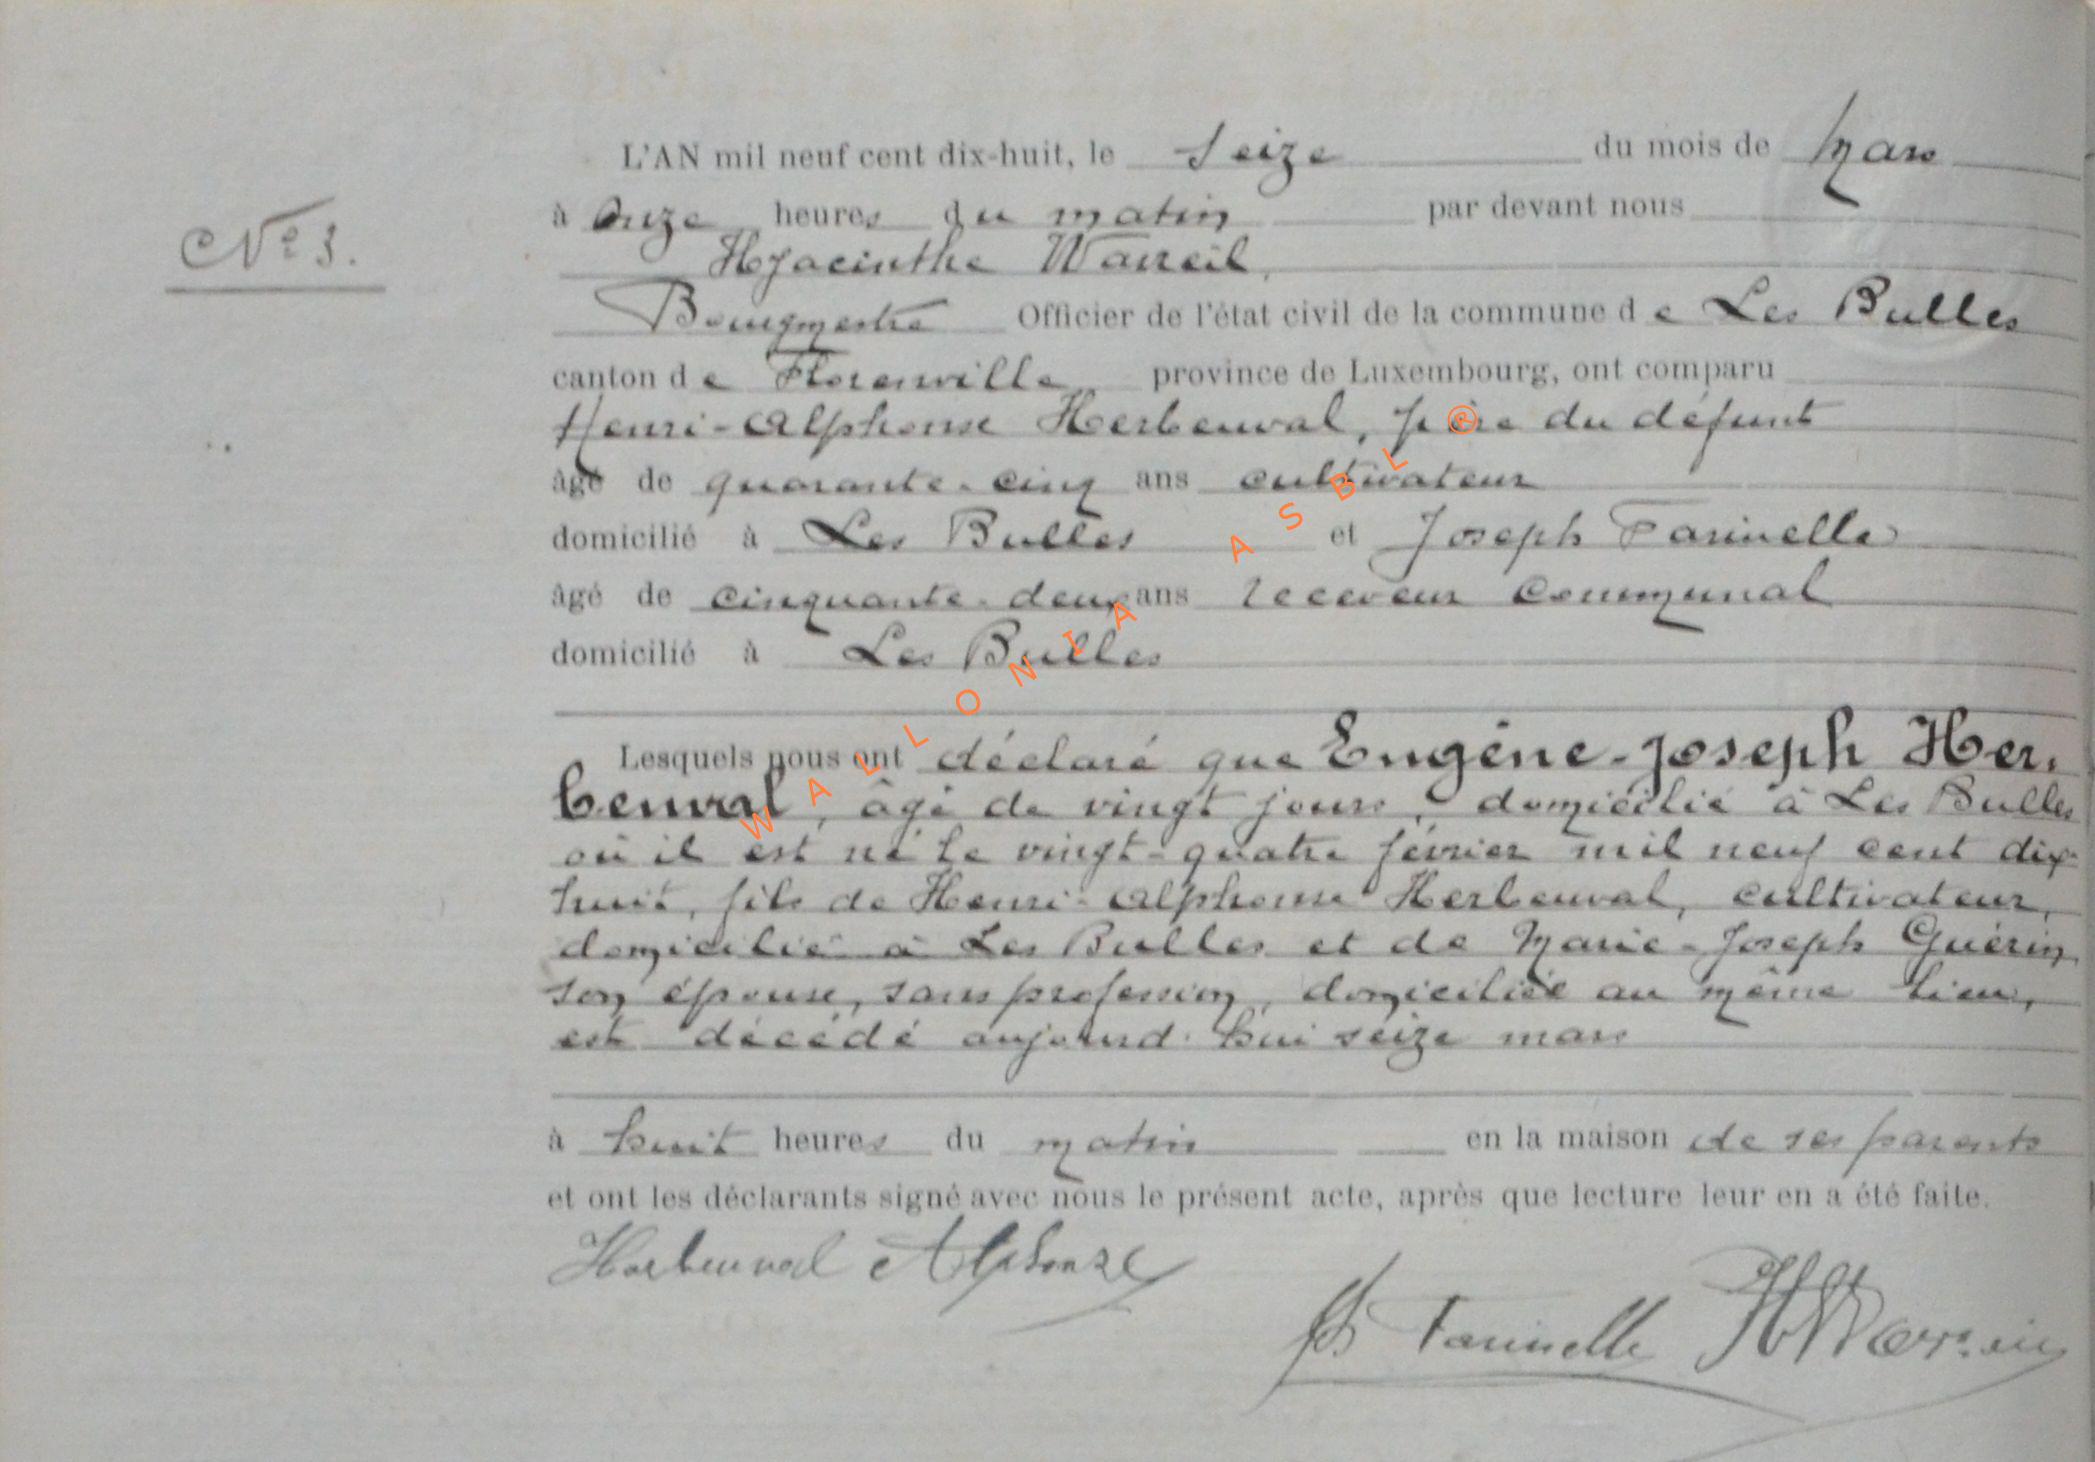 L'AN mil neuf cent dix-huit, le seize du mois de Mars
à onze heures du matin par devant nous
N° 3.
Hyacinthe
Bourgmestre Officier de l'état civil de la commune de Les Bulles
canton de Florenville province de Luxembourg, ont comparu
Henri-Alphonse Herbeuval, père du défunt
âgé de quarante-cinq ans cultivateur
domicilié à Les Bulles et Joseph Farinelle
âgé de cinquante-deux ans receveur communal
domicilié à Les Bulles
Lesquels nous ont déclaré que Eugène-Joseph Her-
beuval, âgé de vingt jours, domicilié à Les Bulles
où il est né le vingt-quatre février mil neuf cent dix-
huit, fils de Henri-Alphonse Herbeuval, cultivateur,
domicilié à Les Bulles et de Marie-Joseph Guérin
son épouse, sans profession, domiciliée au même lieu,
est décédé aujourd'hui seize mars
à huit heures du matin en la maison de ses parents
et ont les déclarants signé avec nous le présent acte, après que lecture leur en a été faite.
Herbeuval Alphonse
Farinelle
WALLONIA ASBL®